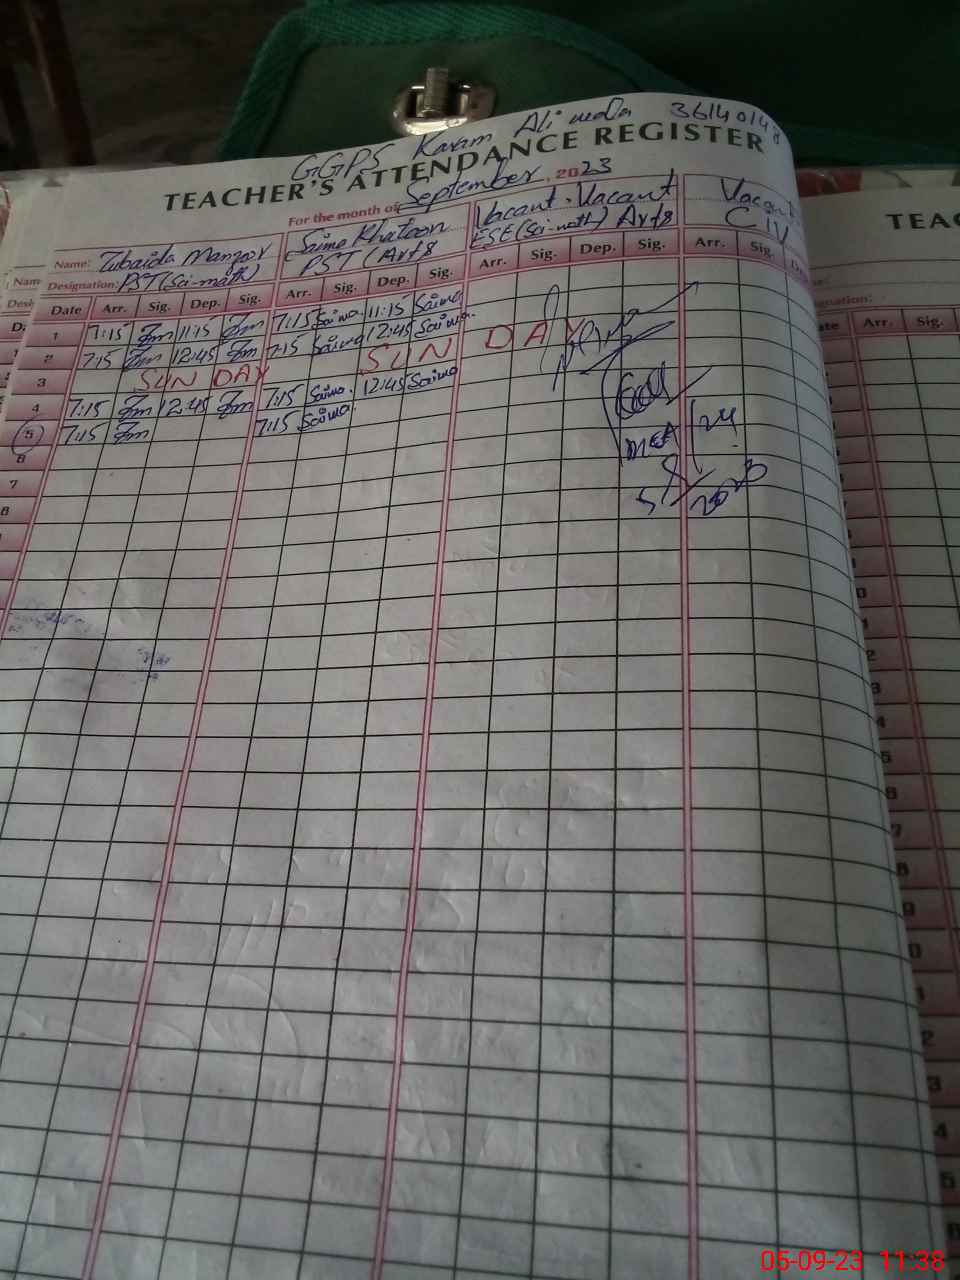 GGPS Karam Ali wala 36140148
TEACHER'S ATTENDANCE REGISTER
For the month of September, 2023
Name: Zubaida Manzoor Saima Khatoon Vacant . Vacant Vacant
Designation: PST (Sci-math) PST (Arts ESE (Sci-math) Arts C IV
Date Arr. Sig. Dep. Sig. Arr. Sig. Dep. Sig. Arr. Sig. Dep. Sig. Arr. Sig.
1 7:15 Zm 11:15 Zm 7:15 Saima 11:15 Saima
2 7:15 Zm 12:45 Zm 7:15 Saima 12:45 Saima.
3 SUNDAY SUN DAY
4 7:15 Zm 12:45 Zm 7:15 Saima. 12:45 Saima
5 7:15 Zm 7:15 Saima.
6
7
8
MEA
5/9/2023
TEAC
Arr. Sig.
Nam
05-09-23 11:38